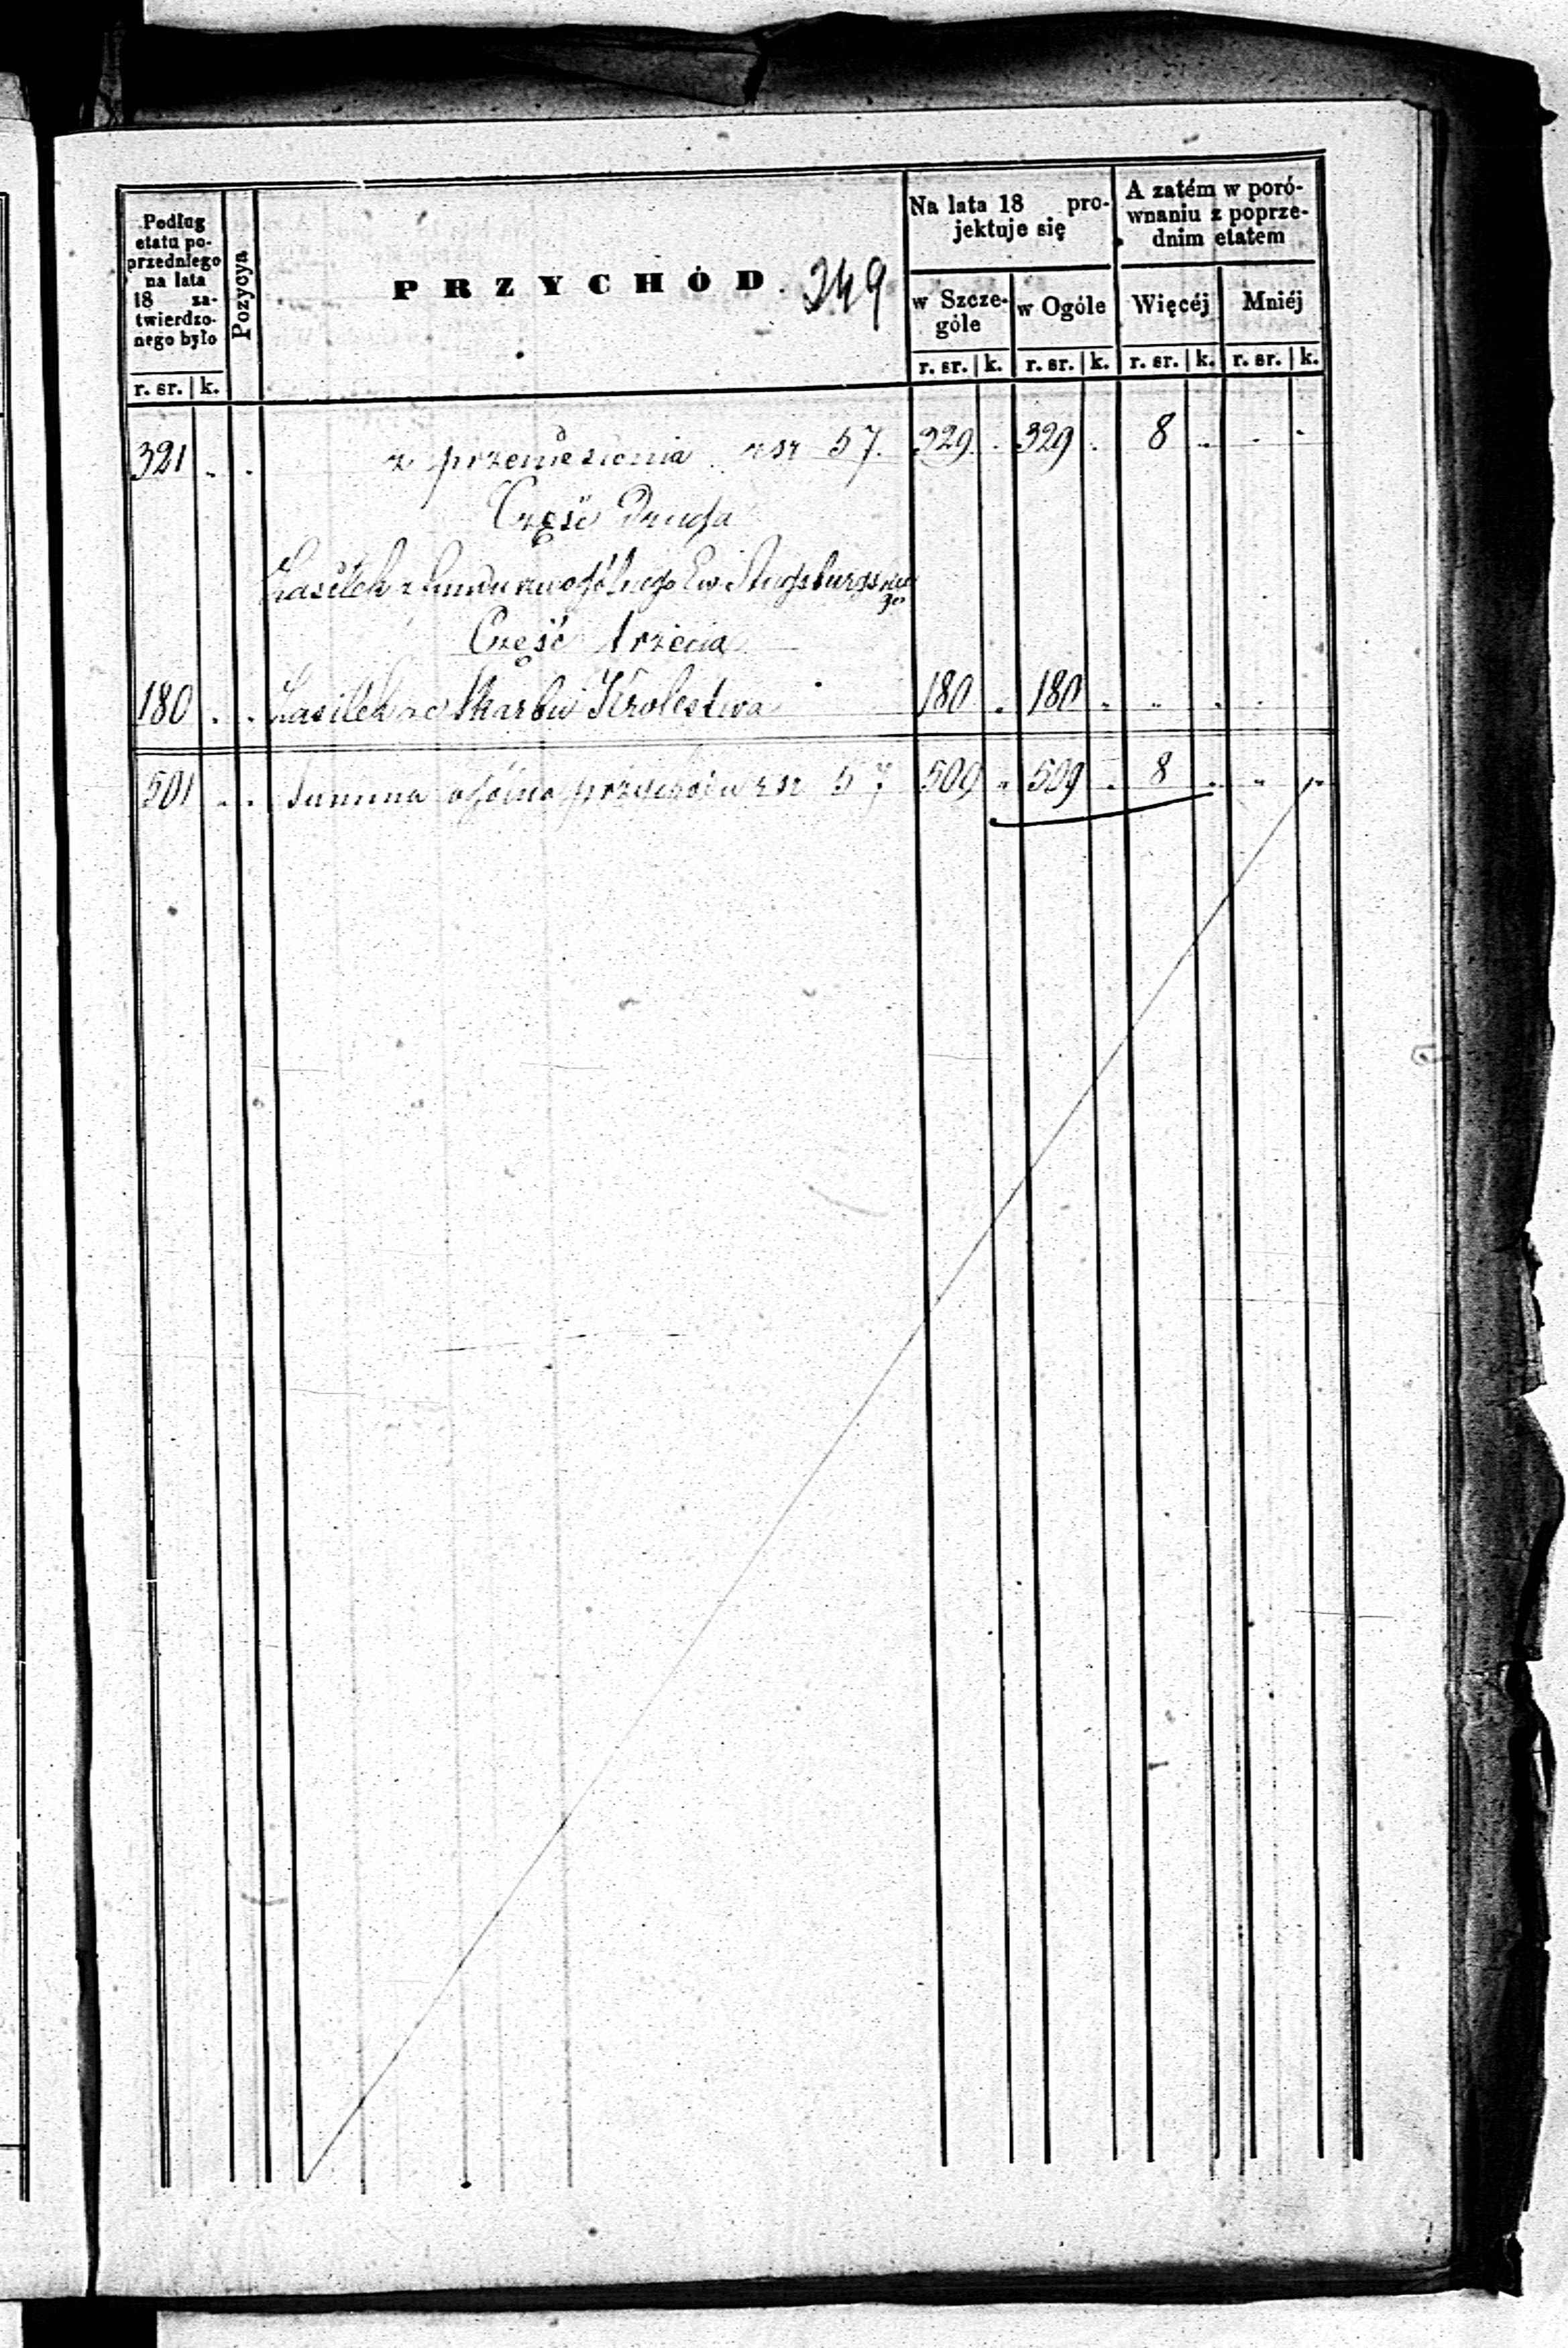 Podług
etatu po-
przedniego
na lata
18 za-
twierdzo-
nego było
r. sr. k.
Pozycya
PRZYCHÓD. 349
Na lata 18 pro-
jektuje się
w Szcze-
góle
r. sr. k.
w Ogóle
r. sr. k.
A zatém w poró-
wnaniu z poprze-
dnim etatem
Więcéj
r. sr. k.
Mniéj
r. sr. k.
321 . . z przeniesienia rsr 57. 329 . 329 . 8 .. . .
Część Druga
Zasiłek z funduszu ogólnego Ew Augsburgskie
go
Część trzecia
180 . . Zasiłek ze Skarbu Krolestwa 180 . 180 . .. . .
501 . . Summa ogólna przychodu rsr 57 509 . 509 . 8 . .. ..